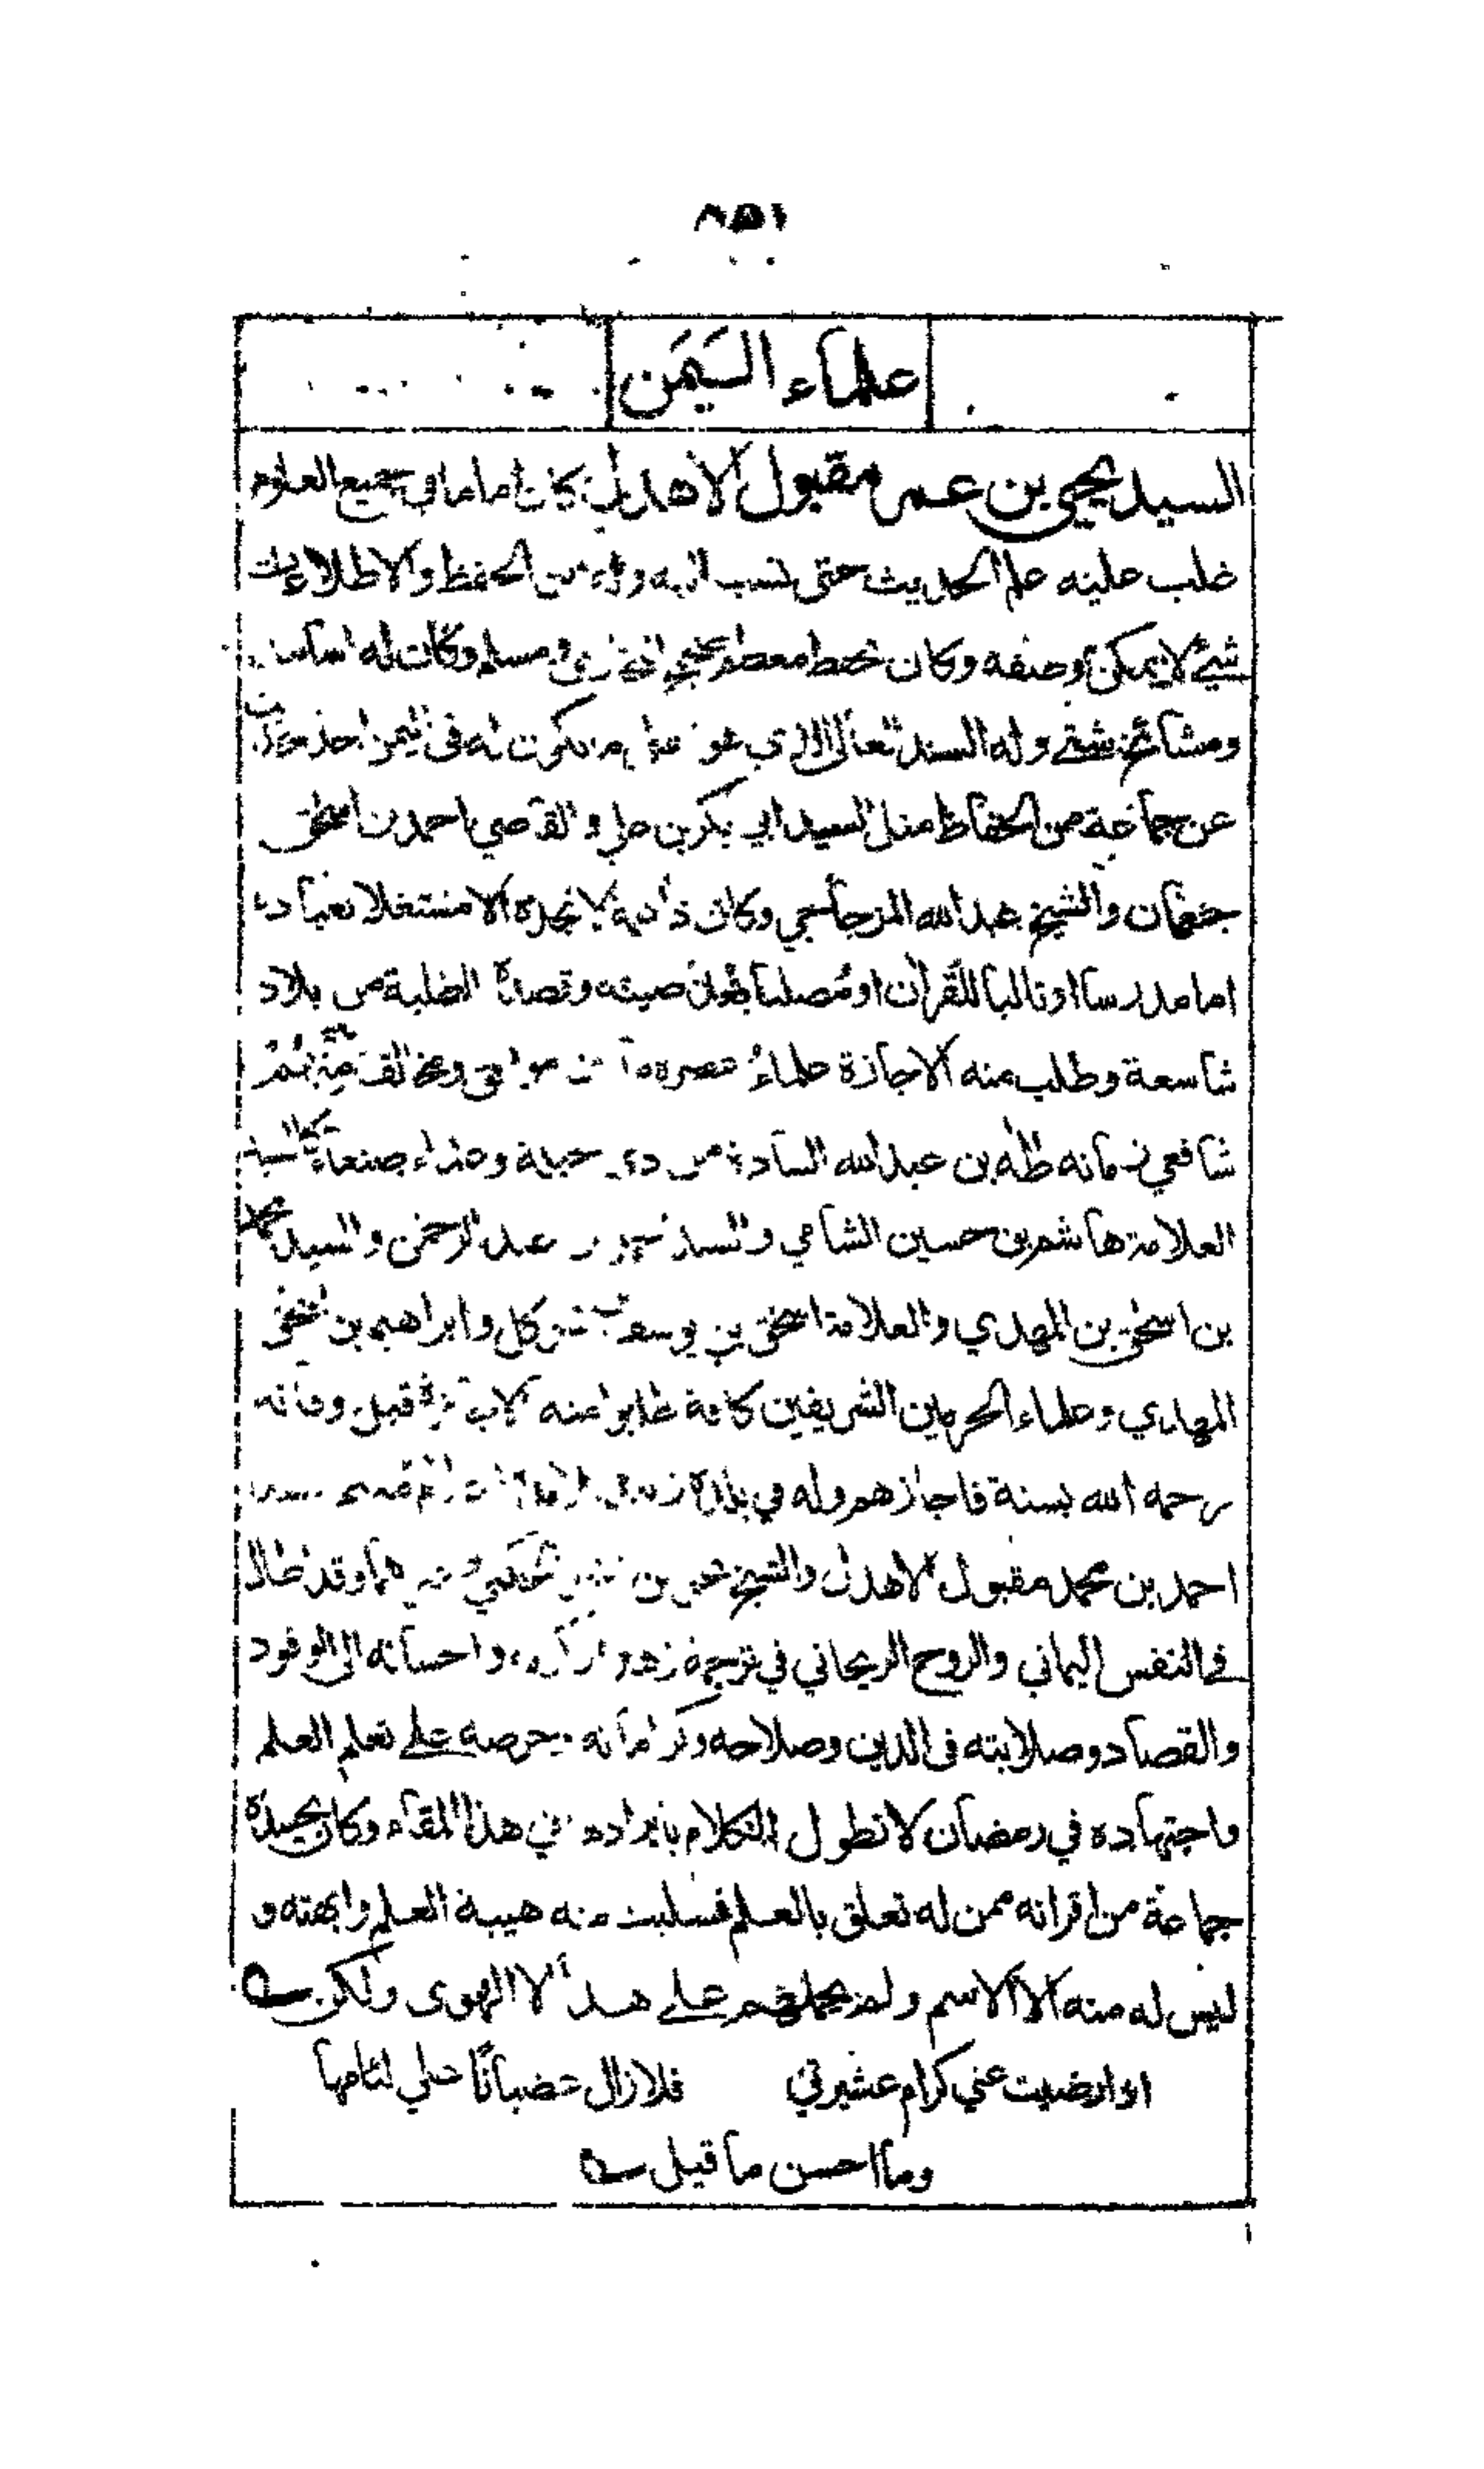 ٨٥١
علماء اليمن
السيد يحيى بن عمر مقبول الاهدل كان اماما في جميع العلوم
غلب عليه علم الحديث حتى نسب اليه وله من الحفظ والاطلاع
شيئ لا يمكن وصفه وكان يحفظ معظم صحيح مسلم وكان له
ومشائخ شتى وله السند العالى الذي في اليمن اخذ
عن جماعة من الحفاظ مثل السيد ابي بكر بن علي والقاضي احمد بن اسحق
جعمان والشيخ عبد الله المزجاجي وكان لا تجده الا مشتغلا بعبادة
اما مدرسا او تاليا للقرآن او مصليا صيته وقصده الطلبة من بلاد
شاسعة وطلب منه الاجازة علماء عصره من موافق ومخالف منهم
شافعي زمانه طه بن عبد الله السادة من ذي جبلة وعلماء صنعاء كالسيد
العلامة هاشم بن حسين الشامي والسيد عبد الرحمن والسيد محمد
بن اسحق بن المهدي والعلامة اسحق بن يوسف المتوكل وابراهيم بن اسحق
المهدي وعلماء الحرمين الشريفين كافة طلبوا منه الاجازة قبل وفاته
رحمه الله بسنة فاجازهم وله في بلدة زبيد
احمد بن محمد مقبول الاهدل والشيخ وغيرهما وقد اطال
في النفس اليماني والروح الريحاني في ترجمة زهده وكرمه واحسانه الى الوفود
والقصاد وصلابته في الدين وصلاحه وكراماته وحرصه على تعلم العلم
واجتهاده في رمضان لا نطول الكلام بايراده في هذا المقام وكان يحسده
جماعة من اقرانه ممن له تعلق بالعلم فسلبت منه هيبة العلم وابهته و
ليس له منه الا الاسم ولم يحملهم على هذا الا الهوى ولكن
اذا رضيت عني كرام عشيرتي فلا زال غضبانا علي لئامها
وما احسن ما قيل